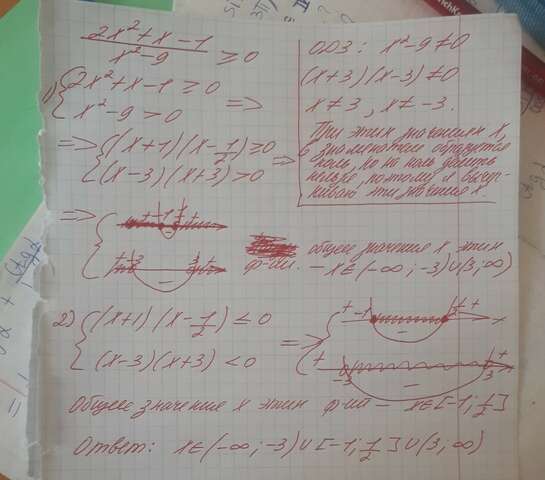 2x²+x-1
x²-9 ≥0
1) {2x²+x-1≥0
{x²-9>0 =>
=> {(x+1)(x-1/2)≥0
{(x-3)(x+3)>0 =>
ОДЗ: x²-9≠0
(x+3)(x-3)≠0
x≠3, x≠-3.
При этих значениях x,
в знаменателе образуется
ноль, но на ноль делить
нельзя, поэтому я вычер-
киваю эти значения x.
=> {
+ -1 1/2 +
-
+ -3 3 +
-
общее значение x этих
ф-ий. - x∈(-∞;-3)∪(3;∞)
2) {(x+1)(x-1/2)≤0
{(x-3)(x+3)<0 => {
+ -1 1/2 + x
-
+ -3 3 +
-
Общее значение x этих ф-ий - x∈[-1;1/2]
Ответ: x∈(-∞;-3)∪[-1;1/2]∪(3,∞)